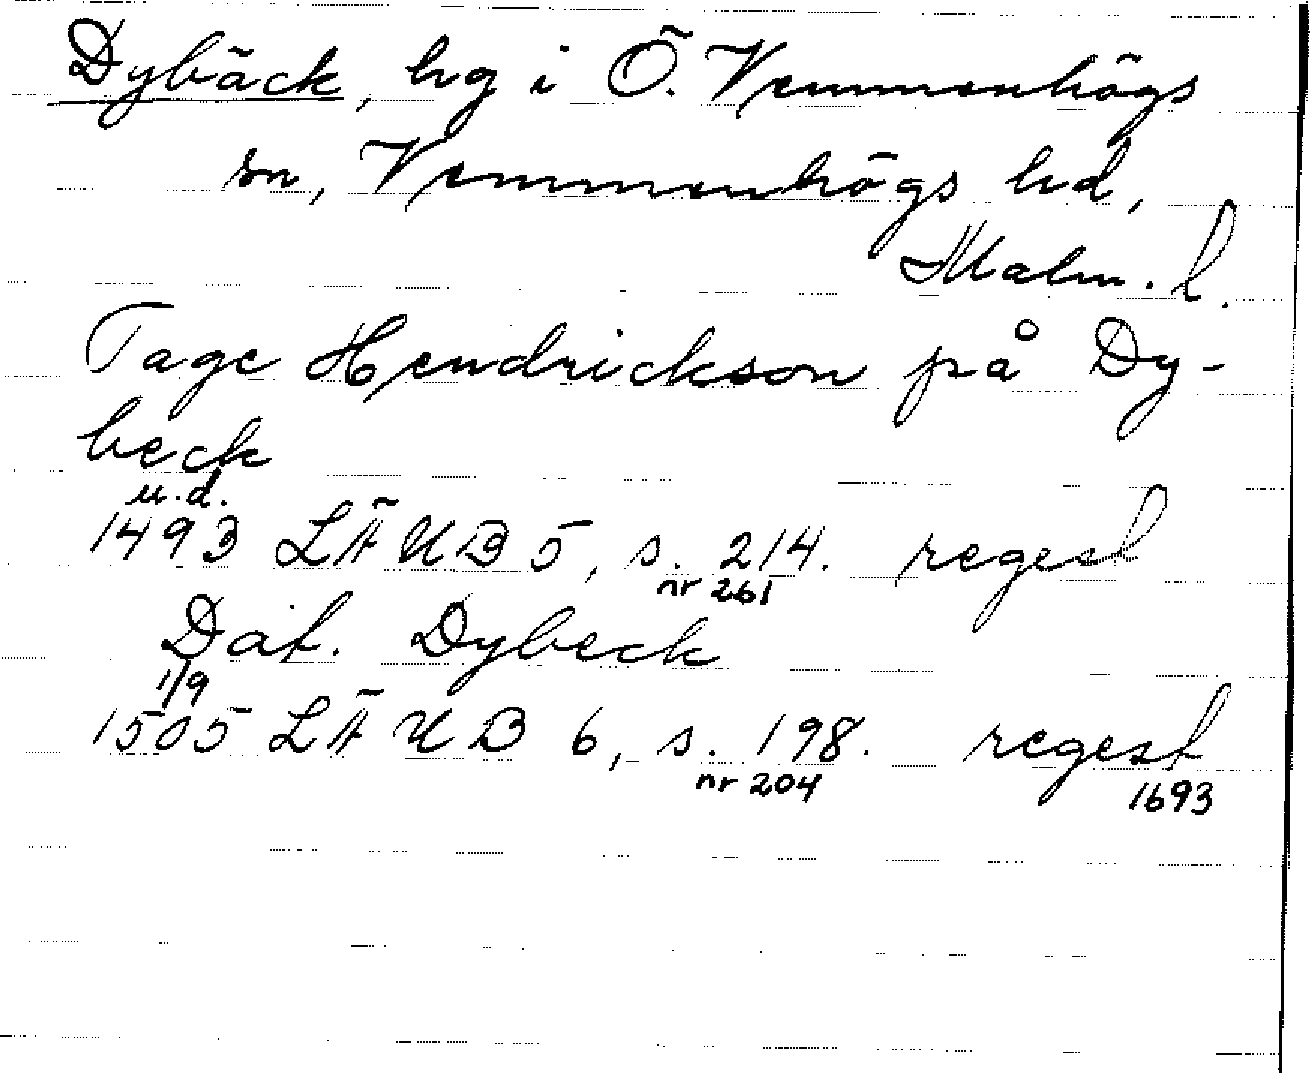 Dybäck, hg i Ö. Vemmenhögs
sn, Vemmenhögs hd,
Malm. l.
Tage Hendrickson på Dy-
beck
u.d.
1493 LÄUB 5, s. 214. regest
nr 261
Dat. Dybeck
1/9
1505 LÄUB 6, s. 198. regest
nr 204 1693